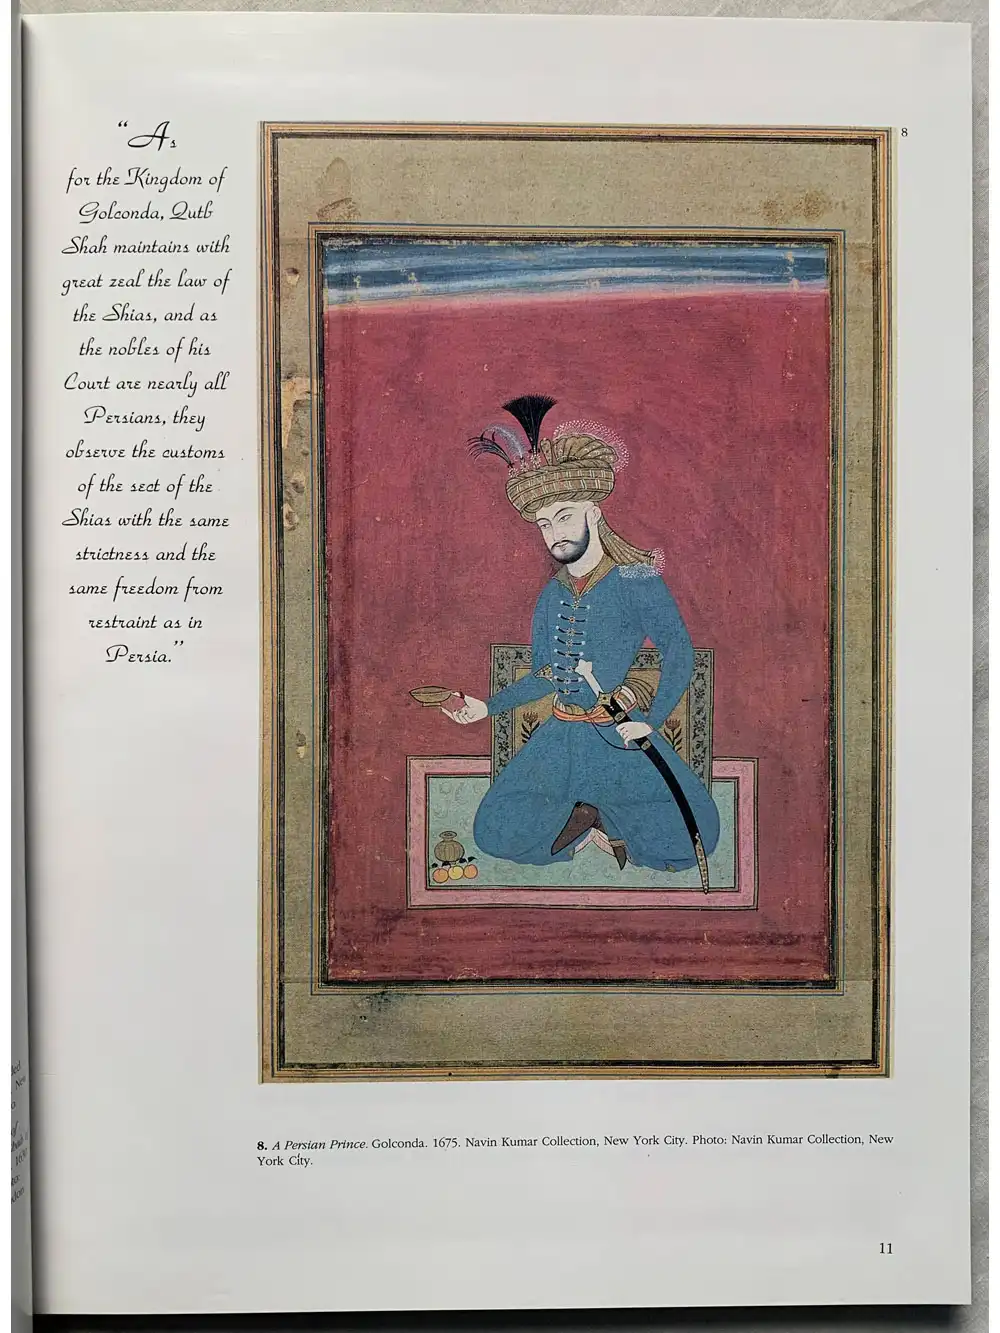 "As
for the Kingdom of
Golconda, Qutb
Shah maintains with
great zeal the law of
the Shias, and as
the nobles of his
Court are nearly all
Persians, they
observe the customs
of the sect of the
Shias with the same
strictness and the
same freedom from
restraint as in
Persia."
8
8. A Persian Prince. Golconda. 1675. Navin Kumar Collection, New York City. Photo: Navin Kumar Collection, New
York City.
11